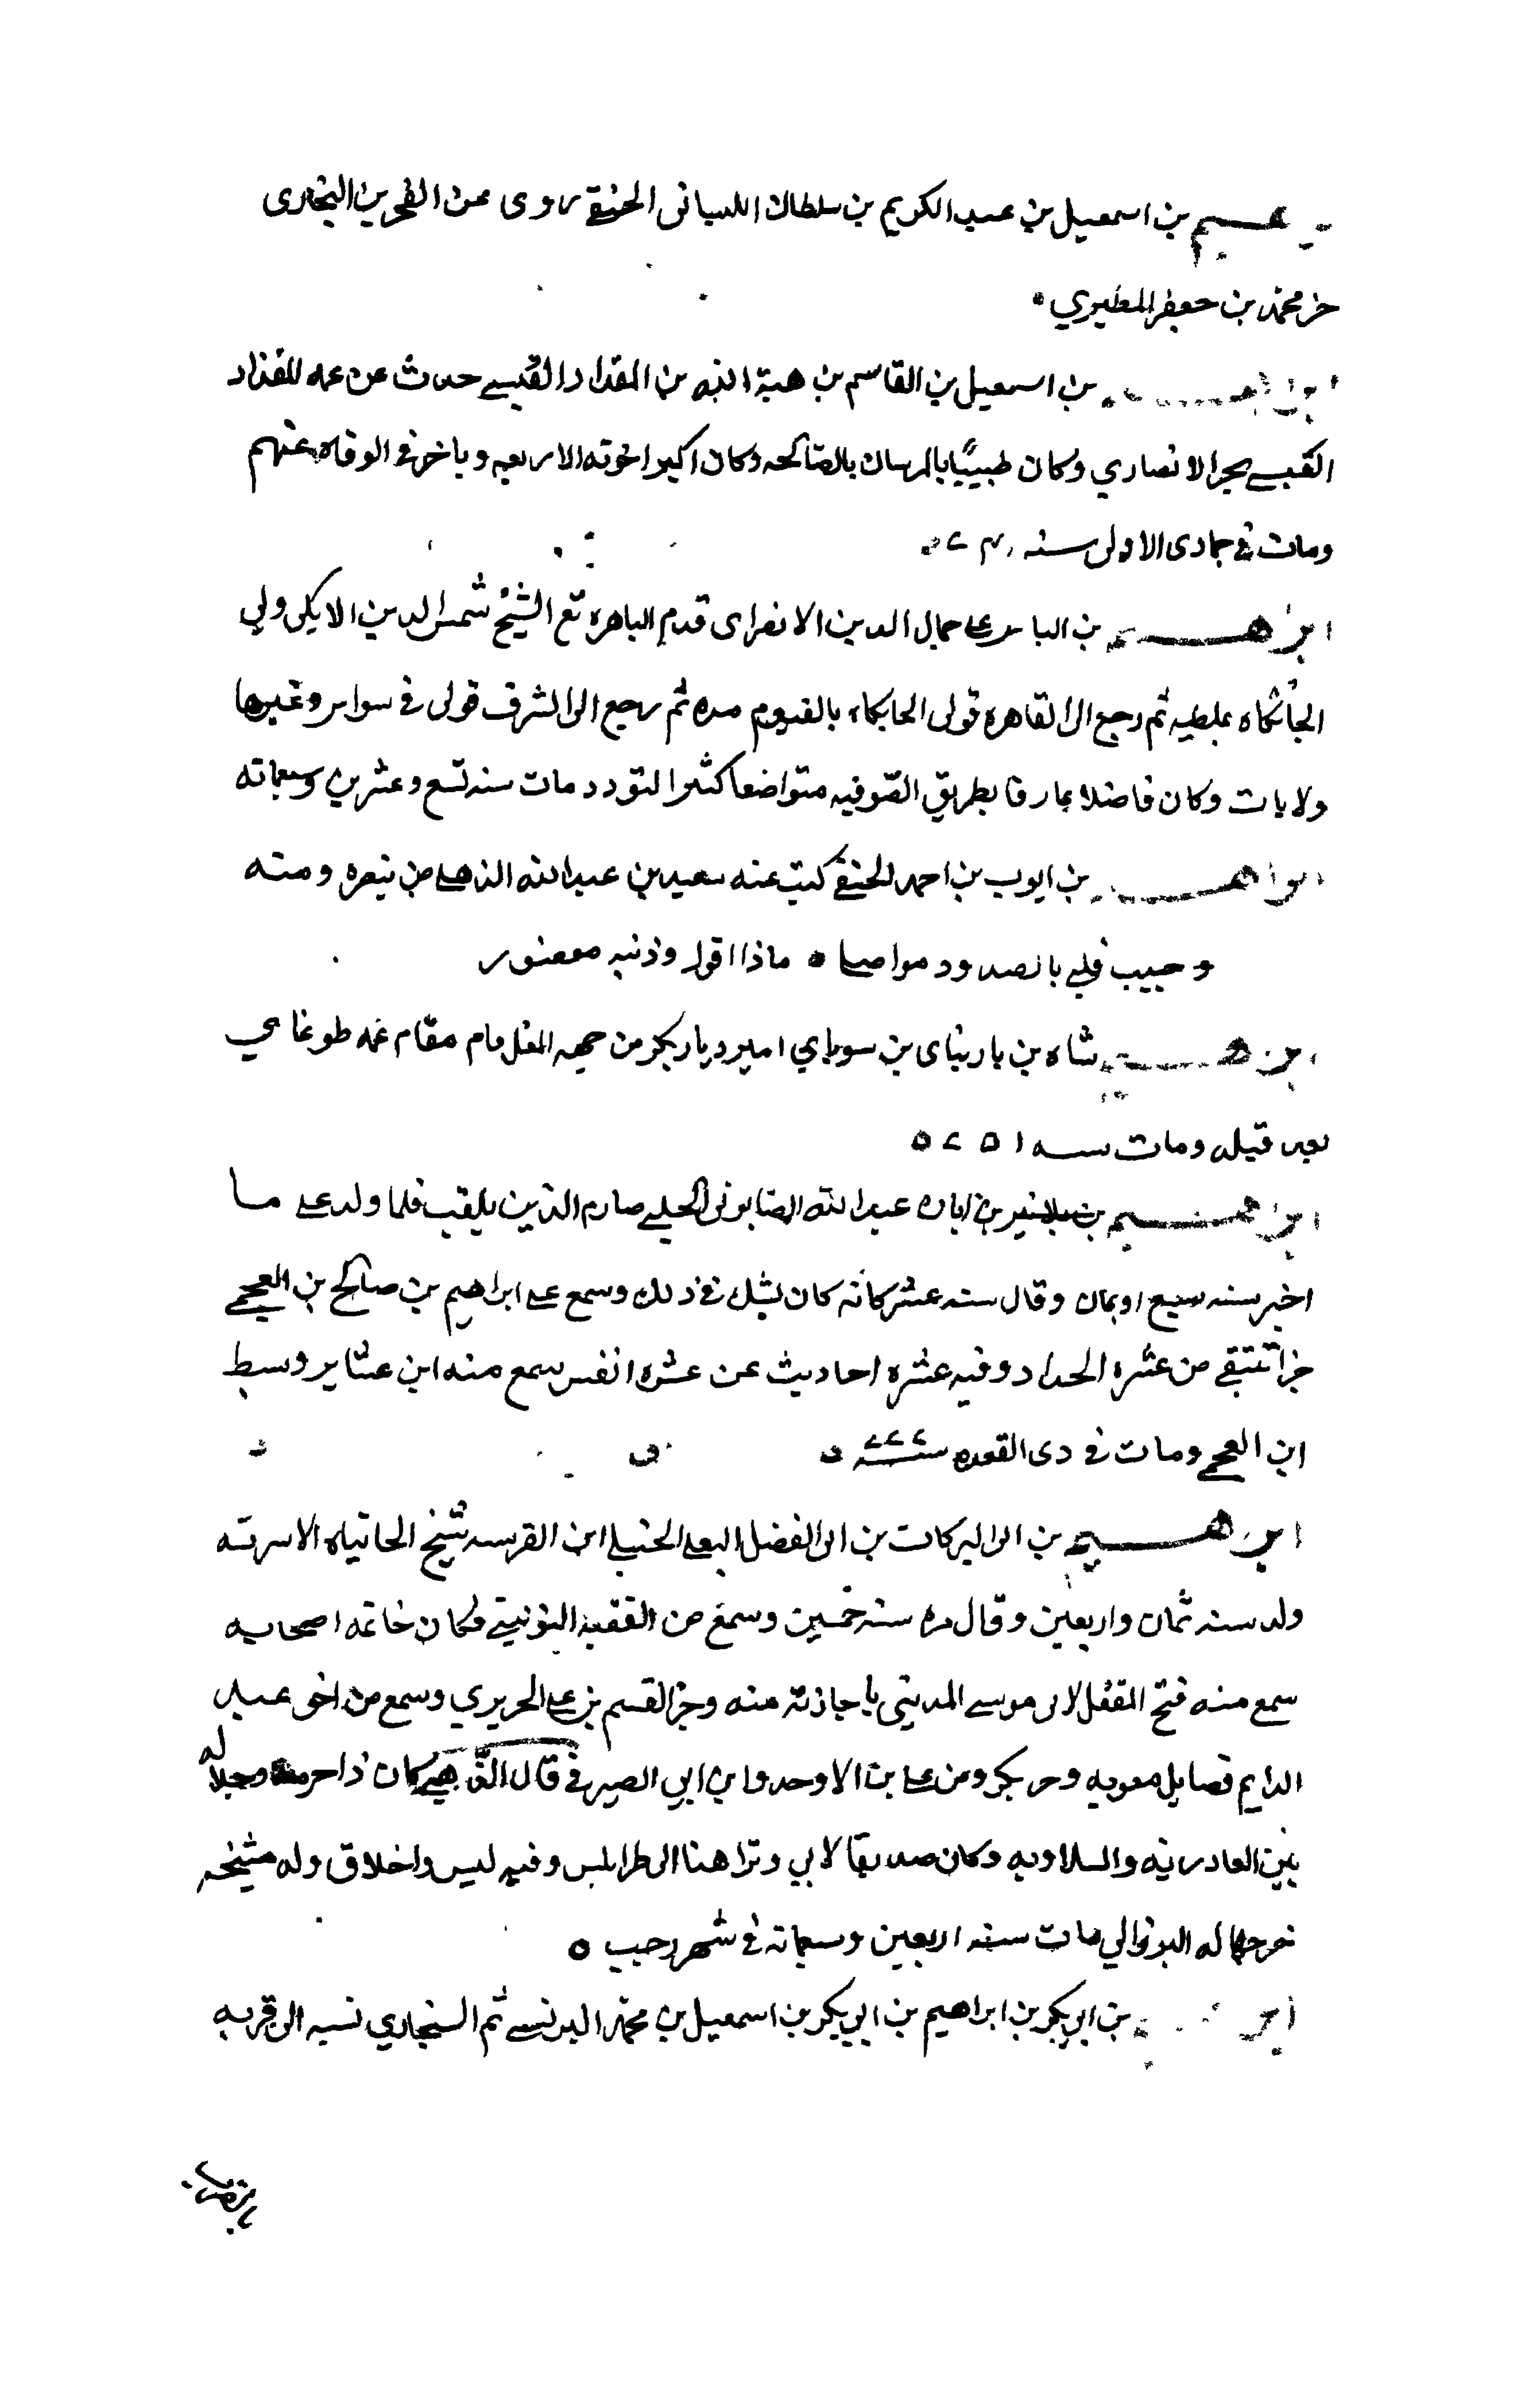 بن اسمعيل بن عبد الكريم بن سلطان اللبيانى الحنفي روى عن الفخر بن البخارى
جز محمد بن جعفر المطيري
بن اسمعيل بن القاسم بن هبة الله بن المقداد القيسي حدث عن عمه المقداد
القيسي بجز الانصاري وكان طبيبًا بالمرستان بالصالحه وكان اكبر اخوته الاربعه وتاخر في الوفاه عنهم
ومات في جمادى الاولى سنه
ابراهيم بن جمال الدين قدم القاهره مع الشيخ شمس الدين الايكي ولي
الخانكاه بملطيه ثم رجع الى القاهره فولى الخانكاه بالفيوم مده ثم رجع الى الشرق فولى في سواس وغيرها
ولايات وكان فاضلا عارفا بطريق الصّوفيه متواضعا كثير التودد مات سنه تسع وعشرين وسبعمائه
ابراهيم بن ايوب بن احمد الحنفي كتب عنه سعيد بن عبد الله الذهلي من شعره ومنه
وحبيب قلبي بالصدود مواصلي ماذا اقول وذنبه مغفور
ابراهيم شاه بن بارنباى بن سوتاي امير ديار بكر من جهه المغل قام مقام عمه طوغاي
بعد قتله ومات سنه ٧٥١
ابراهيم بن عبد الله الصابونى الحلبي صارم الدين ولد على ما
اخبر سنه سبع او ثمان وقال سنه عشر كانه كان يشك في ذلك وسمع على ابراهيم بن صالح بن العجمي
جزا منتقى من عشره الحداد وفيه عشره احاديث عن عشره انفس سمع منه ابن عشاير وسبط
ابن العجمي ومات في ذى القعده سنه ٧٧٧
ابراهيم بن ابى البركات بن ابى الفضل البعلي الحنبلي ابن القرشيه شيخ الخانقاه الاسديه
ولد سنه ثمان واربعين وقال مره سنه خمسين وسمع من الفقيه اليونيني فكان خاتمه اصحابه
سمع منه فتح المقفل لابى موسى المديني باجازته منه وجز القسم بن علي الحريري وسمع من ابن عبد
الدايم فضايل معويه وجز بكر ومن علي بن الاوحد وابن ابي الصيرفي قال الذهبي كان ذا حرمه وجلاله
بين القادريه والسلاويه وكان صديقا لابي وترافقنا الى طرابلس وفيه لين واخلاق وله مشيخه
خرجها له البرزالي مات سنه اربعين وسبعمائه في شهر رجب
بن ابي بكر بن ابراهيم بن ابي بكر بن اسمعيل بن محمد ثم السنجاري نسبه الى قريه